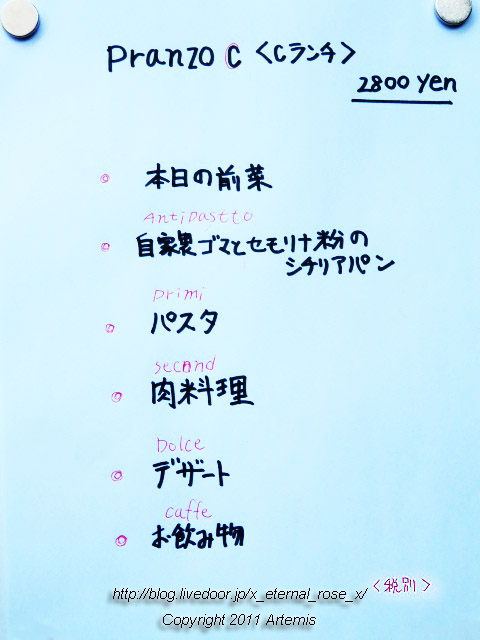 Pranzo C 〈Cランチ〉
2800 Yen
本日の前菜
Antipastto
自家製ゴマとセモリナ粉の
シチリアパン
primi
パスタ
second
肉料理
Dolce
デザート
caffe
お飲み物
〈税別〉
http://blog.livedoor.jp/x_eternal_rose_x/
Copyright 2011 Artemis